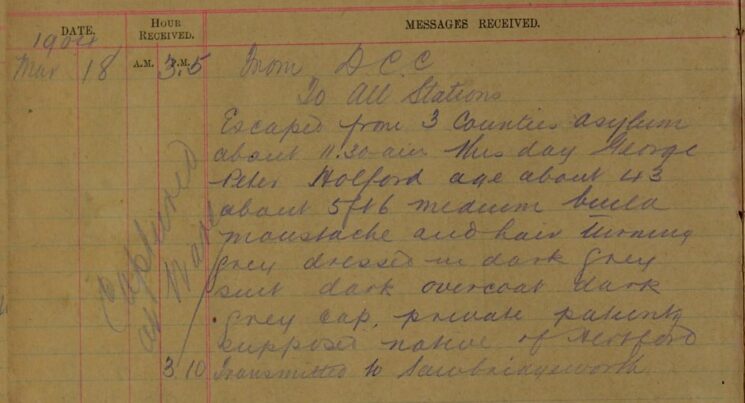 DATE. HOUR RECEIVED. MESSAGES RECEIVED.
1904
Mar 18 A.M. P.M. 3.5 From D.C.C
To All Stations
Escaped from 3 Counties asylum
about 11.30 am this day George
Peter Holford age about 43
about 5ft 6 medium build
moustache and hair turning
grey dressed in dark grey
suit dark overcoat dark
grey cap. private patient
supposed native of Hertford
3.10 Transmitted to Sawbridgeworth
Captured
at Ware